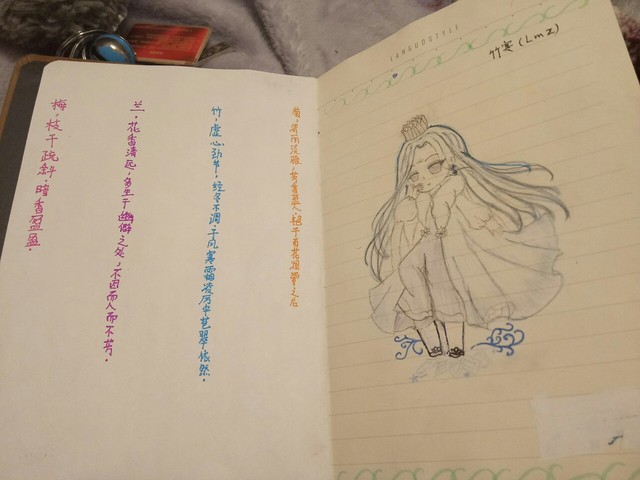 梅,枝干疏斜,暗香盈盈。
兰,花香清远,多生于幽僻之处,不因而人而不芳。
竹,虚心劲节,经冬不凋,于风寒霜凌厉中苍翠依然。
菊,清丽淡雅,芳香盈人,艳于百花凋零之后
竹寒(Lmz)